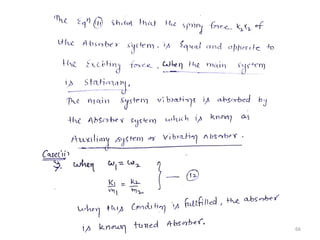 The Eqn (11) shows that the spring force, k2x2 of
the Absorber system, is Equal and opposite to
the Exciting force, when the main system
is Stationary.
The main system vibrations is absorbed by
the Absorber system which is known as
Auxiliary system or Vibrating Absorber.
Case(ii)
When ω1 = ω2
K1/m1 = k2/m2 } — (12)
When this Condition is fullfilled, the absorber
is known tuned Absorber.
68